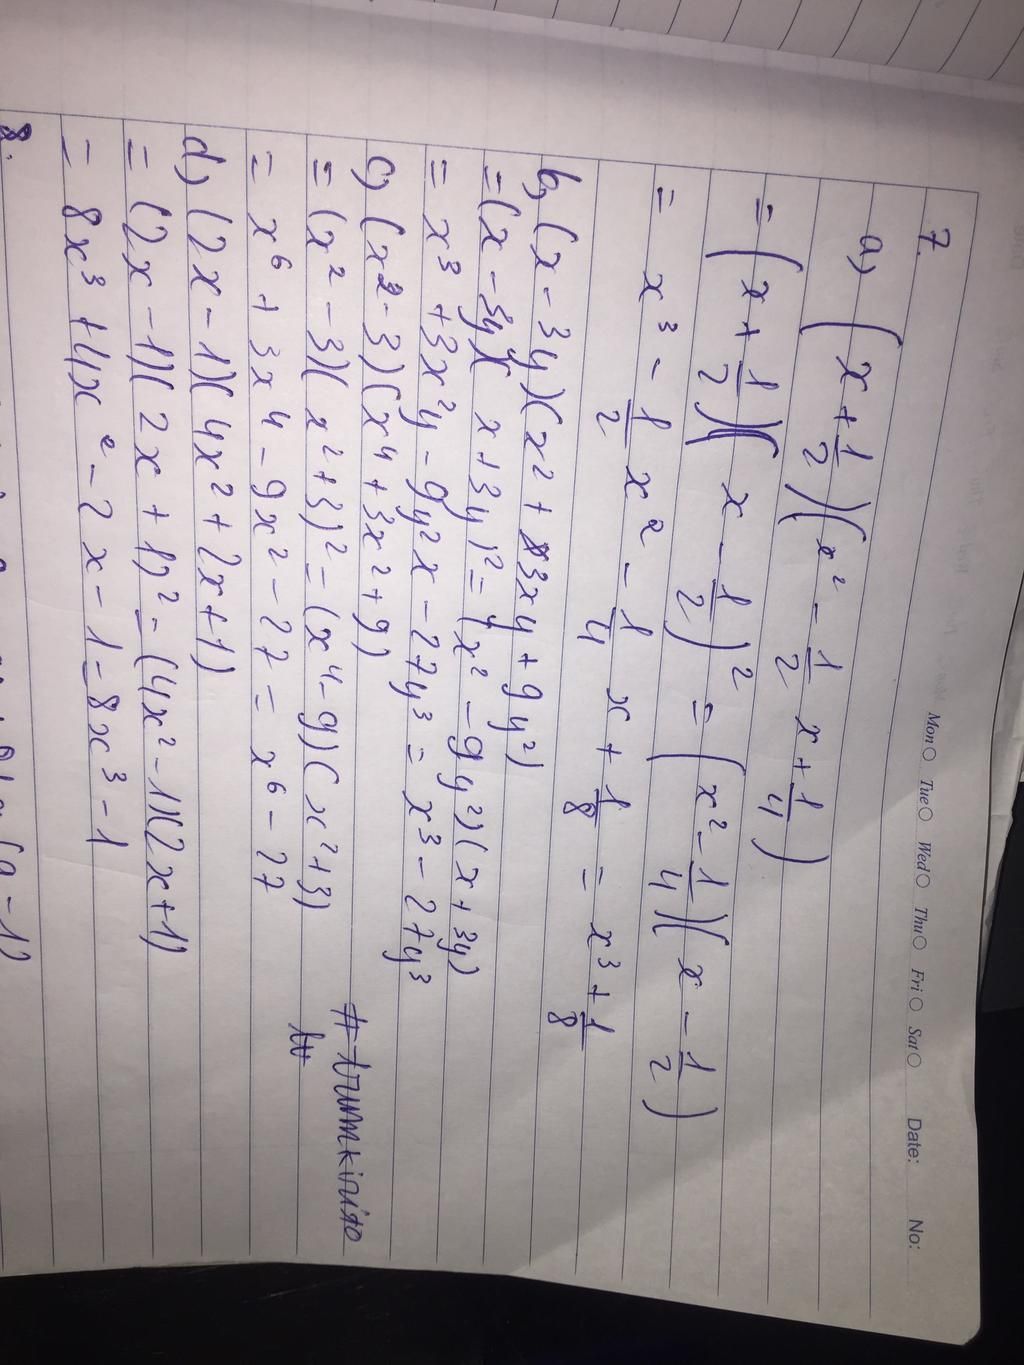 Mon Tue Wed Thu Fri Sat Date: No:
7.
a) (x + 1/2)(x² - 1/2 x + 1/4)
= (x + 1/2)(x - 1/2)² = (x² - 1/4)(x - 1/2)
= x³ - 1/2 x² - 1/4 x + 1/8 = x³ + 1/8
b) (x - 3y)(x² + 3xy + 9y²)
= (x - 3y)(x + 3y)² = (x² - 9y²)(x + 3y)
= x³ + 3x²y - 9y²x - 27y³ = x³ - 27y³
c) (x² - 3)(x⁴ + 3x² + 9)
= (x² - 3)(x² + 3)² = (x⁴ - 9)(x² + 3)
= x⁶ + 3x⁴ - 9x² - 27 = x⁶ - 27
d) (2x - 1)(4x² + 2x + 1)
= (2x - 1)(2x + 1)² = (4x² - 1)(2x + 1)
= 8x³ + 4x² - 2x - 1 = 8x³ - 1
8.